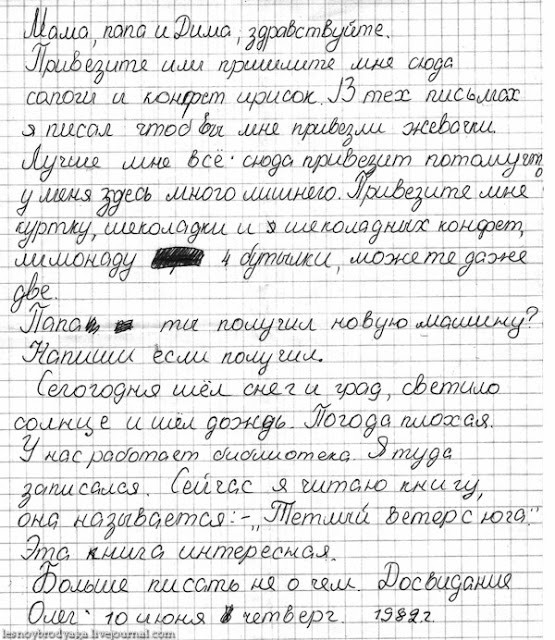 Мама, папа и Дима, здравствуйте.
Привезите или пришлите мне сюда
сапоги и конфет ирисок. В тех письмах
я писал чтоб бы мне привезли жевачки.
Лучше мне всё сюда привезит потамучто
у меня здесь много лишнего. Привезите мне
куртку, шеколадки и я шеколадных конфет,
лимонаду 4 бутылки, можете даже
две.
Папа ты получил новую машину?
Напиши если получил.
Сегогодня шёл снег и град, светило
солнце и шёл дождь. Погода плохая.
У нас работает библиотека. Я туда
записался. Сейчас я читаю книгу,
она называется:-„Теплый ветер с юга".
Эта книга интересная.
Больше писать не о чем. Досвидание
Олег. 10 июня четверг. 1982г.
lesnoybrodyaga.livejournal.com